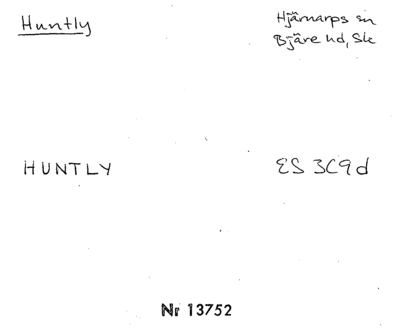 Huntly
Hjärnarps sn
Bjäre hd, Sk
HUNTLY
ES 3C9d
Nr 13752